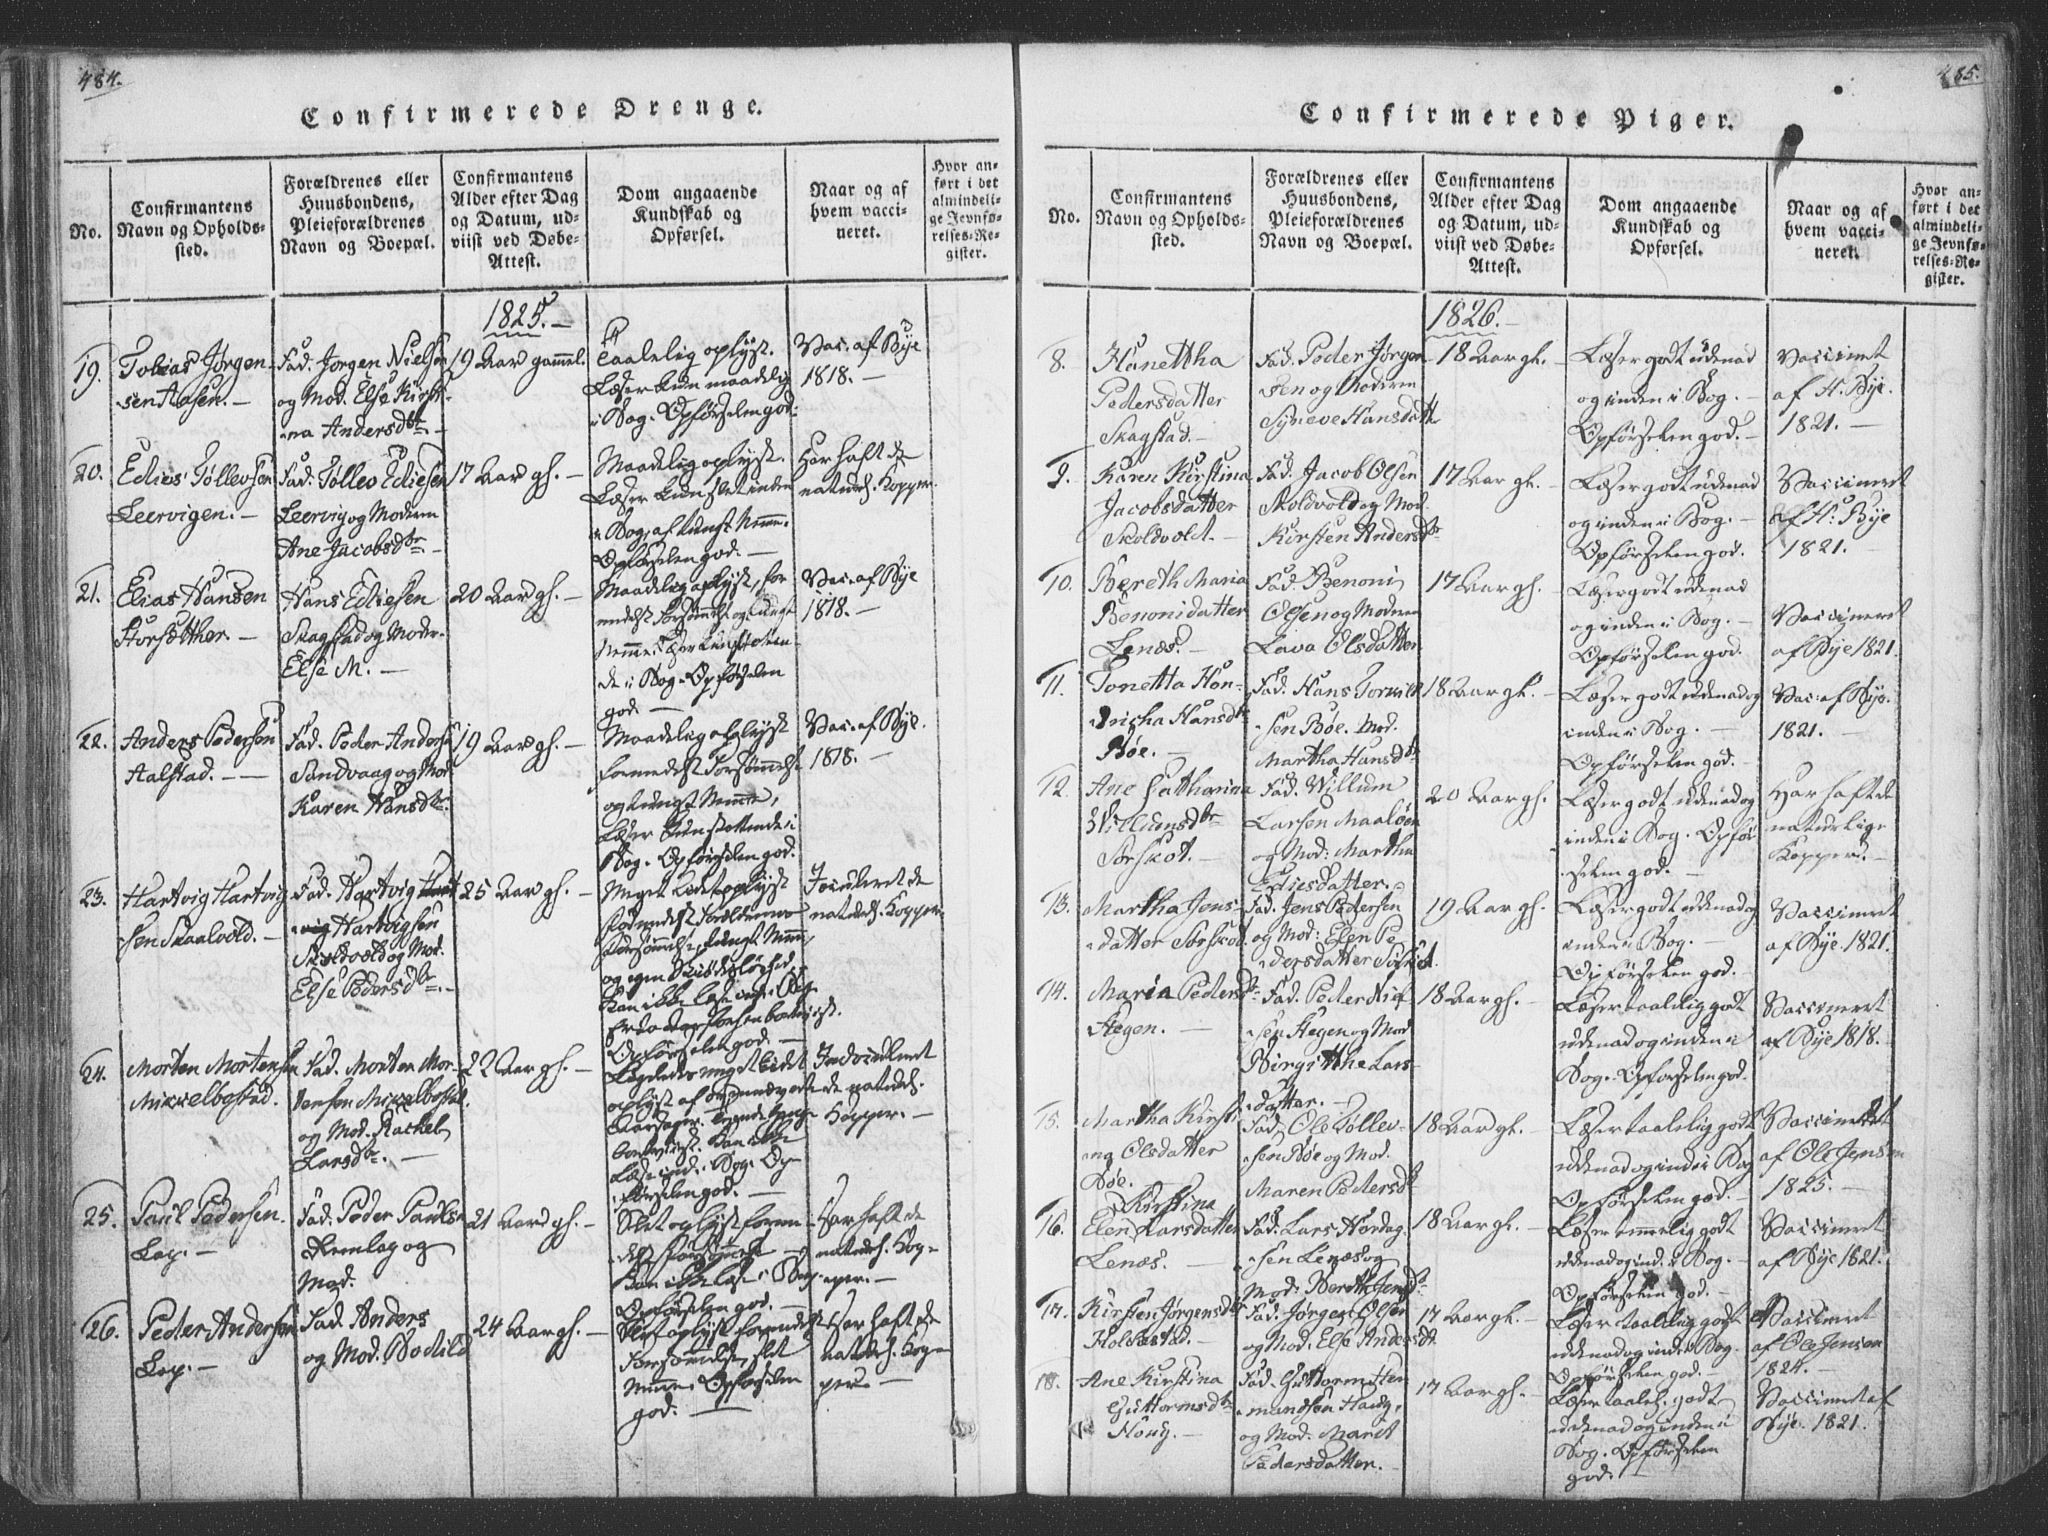 484.
Confirmerede Drenge.
No.
Confirmantens
Navn og Opholds-
sted.
Forældrenes eller
Huusbondens,
Pleieforældrenes
Navn og Boepæl.
Confirmantens
Alder efter Dag
og Datum, ud-
viist ved Døbe-
Attest.
Dom angaaende
Kundskab og
Opførsel.
Naar og af
hvem vacci-
neret.
Hvor an-
ført i det
almindeli-
ge Jevnfø-
relses-Re-
gister.
1825.
19.
Tobias Jørgen-
sen Aasen.
Fad. Jørgen Nielsen
og Mod. Else Kirst-
ina Andersdtr.
19 Aar gammel.
Taalelig oplyst.
Læser kun maadelig
i Bog. Opførselen god.
Vac. af Bye
1818.
20.
Edies Tøllevsen
Leervigen.
Fad. Tøllev Ediesen
Leervig og Moderen
Ane Jacobsdtr.
17 Aar gl.
Maadelig oplyst.
Læser kun slet inden
i Bog, af tungt Nemme.
Opførselen god.
Har haft de
naturl. Kopper.
21.
Elias Hansen
Storsætther.
Hans Ediesen
Skagstad og Moder
Else M.
20 Aar gl.
Maadelig oplyst, for-
medelst Forsømmelse og tungt
Nemme. Læser kun stotten-
de i Bog. Opførselen
god.
Vac. af Bye
1818.
22.
Anders Pedersen
Aalstad.
Fad. Peder Anders
Sandvaag og Mod.
Karen Hansdtr.
19 Aar gl.
Maadelig oplyst
formedelst Forsømmelse
og tungt Nemme,
Læser kun stottende i
Bog. Opførselen god.
Vac. af Bye.
1818.
23.
Hartvig Hartvig-
sen Skaalvold.
Fad. Hartvig
Hartvigsen
Skoldvold og Mod.
Else Pedersdtr.
25 Aar gl.
Meget slet oplyst
formedelst Forældrenes
Forsømmelse, tungt Nemme,
og egen Skjødesløshed.
Kan ikke læse inden i Bog.
Opførselen god.
Inoculeret de
naturl. Kopper.
24.
Morten Mortensen
Mikkelbostad.
Fad. Morten Mor-
tensen Mikkelbostad.
og Mod. Rachel
Larsdtr.
22 Aar gl.
Ligeledes meget slet
oplyst af
Aarsager.
Kan ikke
læse ind. i Bog. Op-
førselen god.
Inoculeret
de naturl.
Kopper.
25.
Paul Pedersen
Lap.
Fad. Peder Pauls
Remlap og
Mod.
21 Aar gl.
Slet oplyst forme-
delst Forsømmelse
Kan ikke læse i Bog.
Opførselen god.
Har haft de
naturl. Kop-
per.
26.
Peder Andersen
Lap.
Fad. Anders
og Mod. Bodild
24 Aar gl.
Slet oplyst formedelst
Forsømmelse, slet
Nemme. Opførselen
god.
Har haft de
naturl. Kop-
per.
485.
Confirmerede Piger.
No.
Confirmantens
Navn og Opholds-
sted.
Forældrenes eller
Huusbondens,
Pleieforældrenes
Navn og Boepæl.
Confirmantens
Alder efter Dag
og Datum, ud-
viist ved Døbe-
Attest.
Dom angaaende
Kundskab og
Opførsel.
Naar og af
hvem vacci-
neret.
Hvor an-
ført i det
almindeli-
ge Jevnfø-
relses-Re-
gister.
1826.
8.
Hanettha
Pedersdatter
Skagstad.
Fad. Peder Jørgen-
sen og Moderen
Syneve Hansdatt
18 Aar gl.
Læser godt udenad
og inden i Bog.
Opførselen god.
Vaccineret
af H. Bye.
1821.
9.
Karen Kirstina
Jacobsdatter
Skoldvold.
Fad. Jacob Olsen
Skoldvold og Mod.
Kirsten Andersdtr
17 Aar gl.
Læser godt udenad
og inden i Bog.
Opførselen god.
Vaccineret
af H. Bye
1821.
10.
Bereth Maria
Benonidatter
Lenæs.
Fad. Benoni
Olsen og Moderen
Lava Olsdatter
17 Aar gl.
Læser godt udenad
og inden i Bog.
Opførselen god.
Vaccineret
af Bye 1821.
11.
Tonetta Hen-
dricha Hansdtr
Bøe.
Fad. Hans Torkild-
sen Bøe. Mod.
Martha Hansdtr
18 Aar gl.
Læser godt udenad og
inden i Bog.
Opførselen god.
Vac. af Bye.
1821.
12.
Ane Catharina
Willumsdtr
Sørskot.
Fad. Willum
Larsen Maaløen
og Mod: Martha
Ediesdatter.
20 Aar gl.
Læser godt udenad og
inden i Bog. Opfør-
selen god.
Har haft de
naturlige
Kopper.
13.
Martha Jens-
datter Sørskot.
Fad. Jens Pedersen
og Mod: Elen Pe-
dersdatter Sørskot.
19 Aar gl.
Læser godt udenad og
inden i Bog.
Opførselen god.
Vaccineret
af Bye. 1821.
14.
Maria Pedersdtr
Stegen.
Fad. Peder Niel-
sen Stegen og Mod
Birgitthe Lars-
datter.
18 Aar gl.
Læser taalelig godt
udenad og inden i
Bog. Opførselen god.
Vaccineret
af Bye 1818.
15.
Martha Kirsti-
na Olsdatter
Bøe.
Fad. Ole Tollev-
sen Bøe og Mod.
Maren Pedersdtr
18 Aar gl.
Læser taalelig godt
udenad og inde i Bog
Opførselen god.
Vaccineret
af Ole Jensen
1825.
16.
Kirstina
Elen Larsdatter
Lenæs.
Fad. Lars Hordag-
sen Lenæs og
Mod: Bereth Jensdtr.
18 Aar gl.
Læser temmelig godt
udenad og ind. i Bog.
Opførselen god.
Vaccineret
af Bye 1821.
17.
Kirsten Jørgensdtr
Holkestad.
Fad. Jørgen Olsen
og Mod. Else Andersdtr
17 Aar gl.
Læser taalelig godt
udenad og inde i Bog.
Opførselen god.
Vaccineret
af Ole Jensen
1824.
18.
Ane Kirstina
Guttormsdtr
Houg.
Fad. Guttorm Sten-
mandsen Haug,
og Mod. Maret
Pedersdatter.
17 Aar gl.
Læser taalel. godt
udenad og inden i
Bog. Opførselen
god.
Vaccineret af
Bye. 1821.